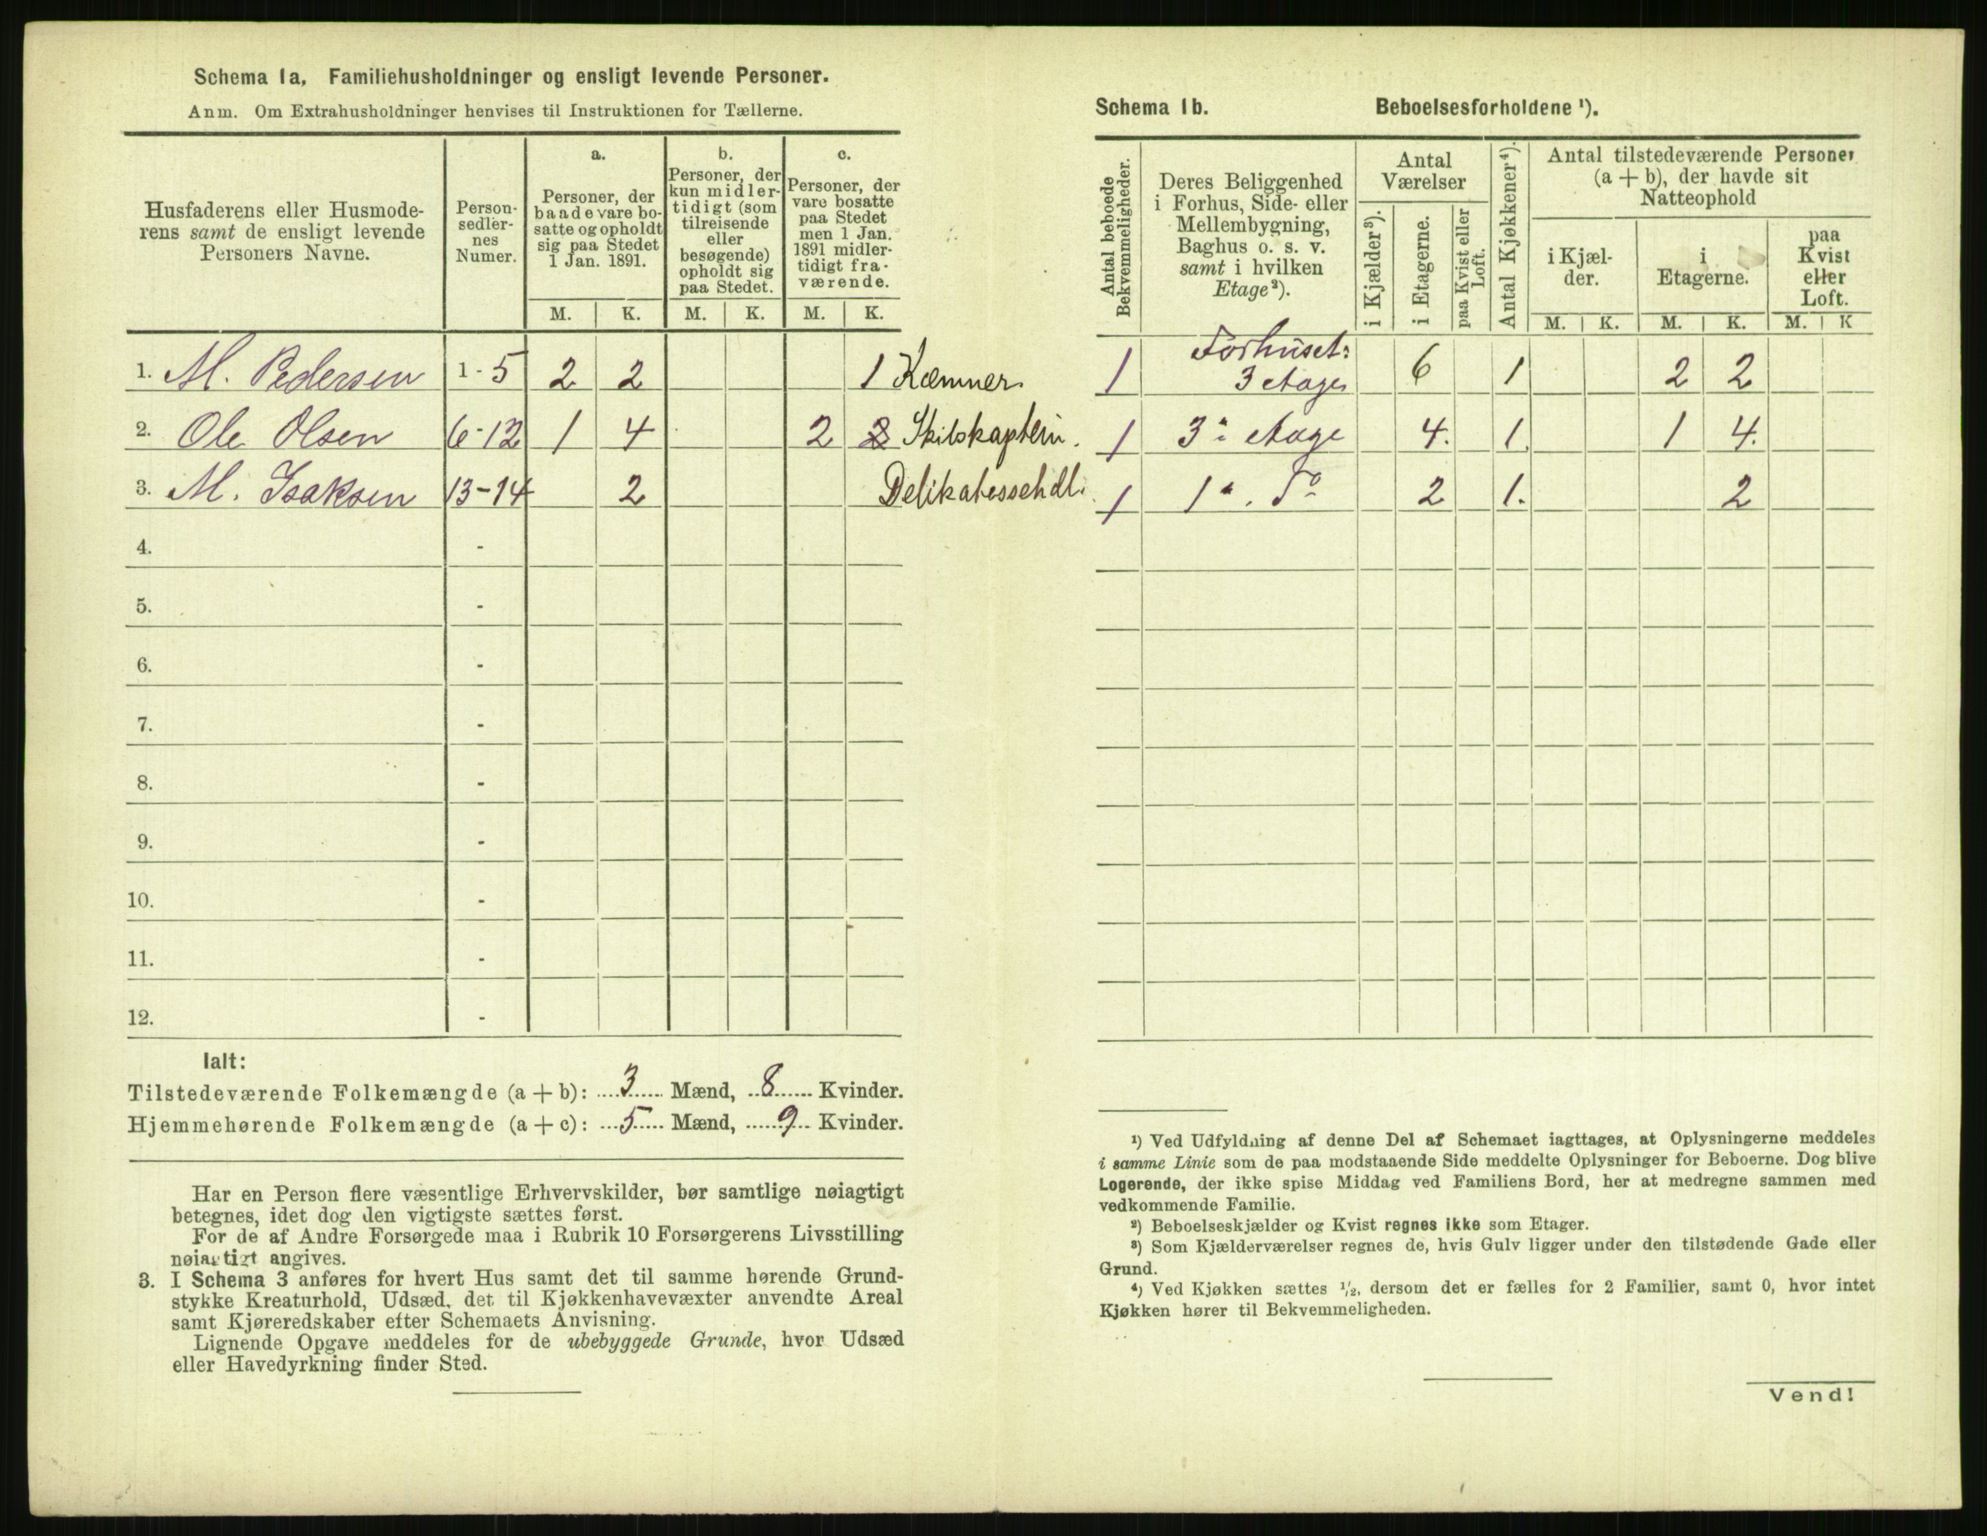 Schema 1a, Familiehusholdninger og ensligt levende Personer.
Anm. Om Extrahusholdninger henvises til Instruktionen for Tællerne.
Husfaderens eller Husmode-
rens samt de ensligt levende
Personers Navne.
Person-
sedler-
nes
Numer.
a.
Personer, der
baade vare bo-
satte og opholdt
sig paa Stedet
1 Jan. 1891.
b.
Personer, der
kun midler-
tidigt (som
tilreisende
eller
besøgende)
opholdt sig
paa Stedet.
c.
Personer, der
vare bosatte
paa Stedet
men 1 Jan.
1891 midler-
tidigt fra-
værende.
M. K. M. K. M. K.
1. M. Pedersen 1-5 2 2 1 Kæmner
2. Ole Olsen 6-12 1 4 2 2 Skibskaptein.
3. M. Isaksen 13-14 2 Delikatessehdl.
4. -
5. -
6. -
7. -
8. -
9. -
10. -
11. -
12. -
Ialt:
Tilstedeværende Folkemængde (a + b): 3 Mænd, 8 Kvinder.
Hjemmehørende Folkemængde (a + c): 5 Mænd, 9 Kvinder.
Har en Person flere væsentlige Erhvervskilder, bør samtlige nøiagtigt
betegnes, idet dog den vigtigste sættes først.
For de af Andre Forsørgede maa i Rubrik 10 Forsørgerens Livsstilling
nøiagtigt angives.
3. I Schema 3 anføres for hvert Hus samt det til samme hørende Grund-
stykke Kreaturhold, Udsæd, det til Kjøkkenhavevæxter anvendte Areal
samt Kjøreredskaber efter Schemaets Anvisning.
Lignende Opgave meddeles for de ubebyggede Grunde, hvor Udsæd
eller Havedyrkning finder Sted.
Schema 1b. Beboelsesforholdene ¹).
Antal beboede
Bekvemmeligheder.
Deres Beliggenhed
i Forhus, Side- eller
Mellembygning,
Baghus o. s. v.
samt i hvilken
Etage²).
Antal
Værelser
i Kjælder³).
i Etagerne.
paa Kvist eller
Loft.
Antal Kjøkkener⁴).
Antal tilstedeværende Personer
(a + b), der havde sit
Natteophold
i Kjæl-
der.
i
Etagerne.
paa
Kvist
eller
Loft.
M. K. M. K. M. K
1 Forhuset: 3 Etage 6 1 2 2
1 3" Etage 4. 1. 1 4.
1 1". Do 2 1. 2
¹) Ved Udfyldning af denne Del af Schemaet iagttages, at Oplysningerne meddeles
i samme Linie som de paa modstaaende Side meddelte Oplysninger for Beboerne. Dog blive
Logerende, der ikke spise Middag ved Familiens Bord, her at medregne sammen med
vedkommende Familie.
²) Beboelseskjælder og Kvist regnes ikke som Etager.
³) Som Kjælderværelser regnes de, hvis Gulv ligger under den tilstødende Gade eller
Grund.
⁴) Ved Kjøkken sættes ¹/₂, dersom det er fælles for 2 Familier, samt 0, hvor intet
Kjøkken hører til Bekvemmeligheden.
Vend!